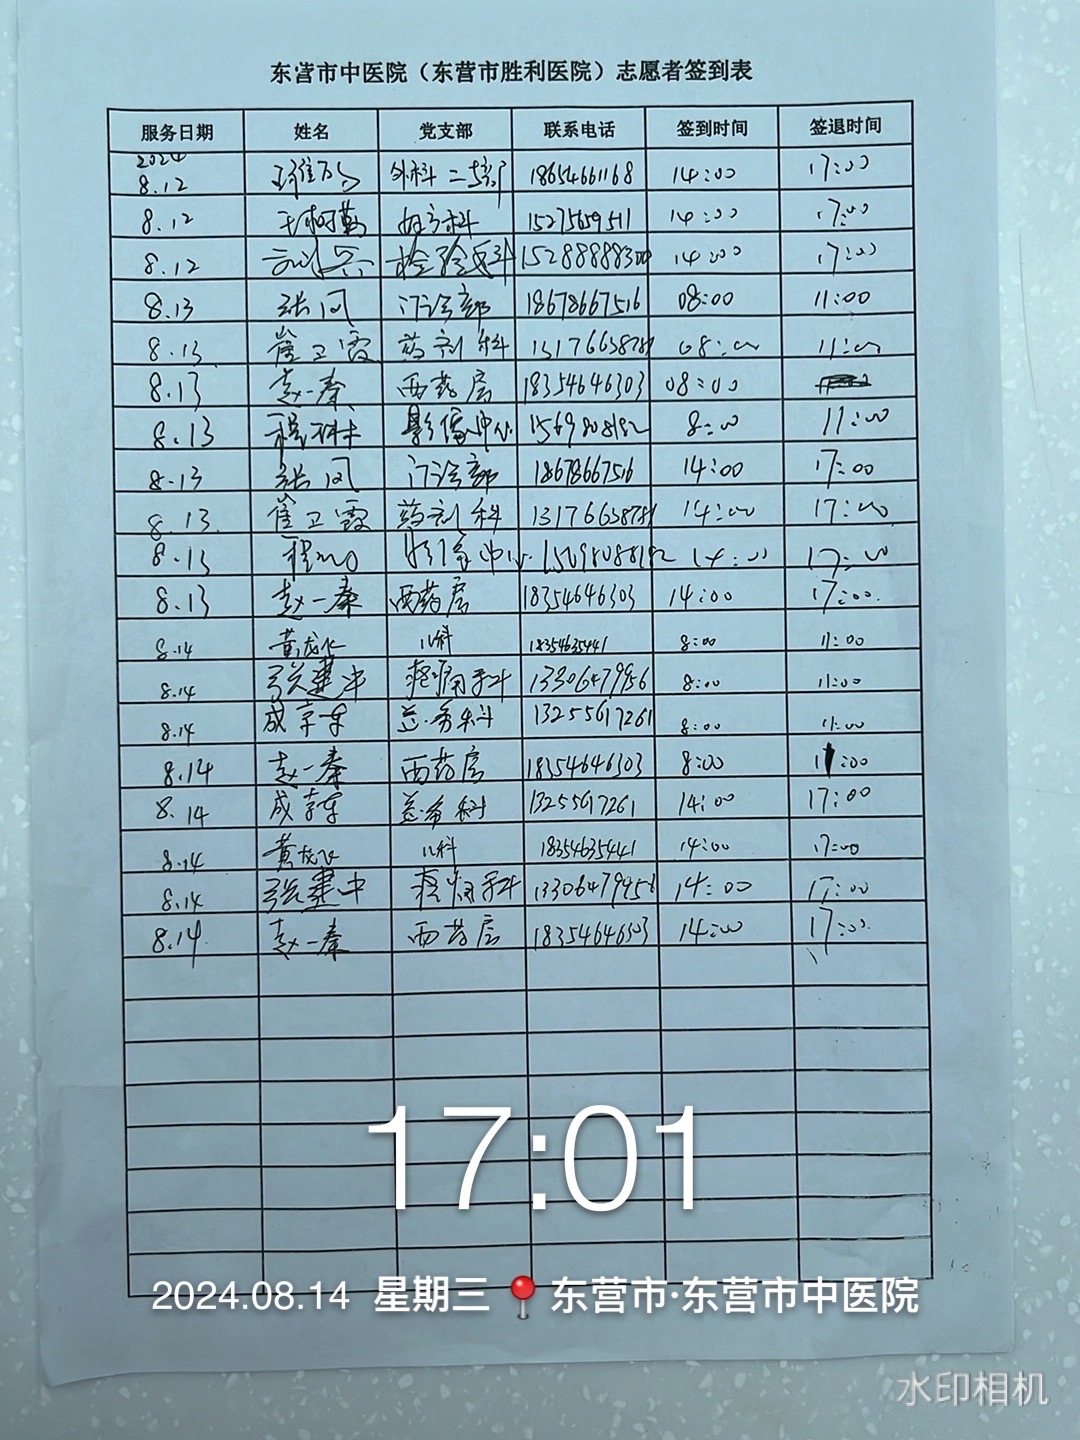 东营市中医院（东营市胜利医院）志愿者签到表
服务日期 姓名 党支部 联系电话 签到时间 签退时间
2024
8.12 外科二 18654661168 14:00 17:00
8.12 科 15275659511 14:00 17:00
8.12 检验科 14:00 17:00
8.13 张 门诊部 18678667516 08:00 11:00
8.13 崔卫霞 药剂科 08:00 11:00
8.13 赵一秦 西药房 18354646303 08:00
8.13 影像中心 8:00 11:00
8.13 张 门诊部 18678667516 14:00 17:00
8.13 崔卫霞 药剂科 14:00 17:00
8.13 影像中心 14:00 17:00
8.13 赵一秦 西药房 18354646303 14:00 17:00
8.14 黄龙飞 儿科 18354635441 8:00 11:00
8.14 张建中 疼痛科 13306479956 8:00 11:00
8.14 科 13255617261 8:00 11:00
8.14 赵一秦 西药房 18354646303 8:00 11:00
8.14 科 13255617261 14:00 17:00
8.14 黄龙飞 儿科 18354635441 14:00 17:00
8.14 张建中 疼痛科 13306479956 14:00 17:00
8.14 赵一秦 西药房 18354646303 14:00 17:00
17:01
2024.08.14 星期三 东营市·东营市中医院
水印相机